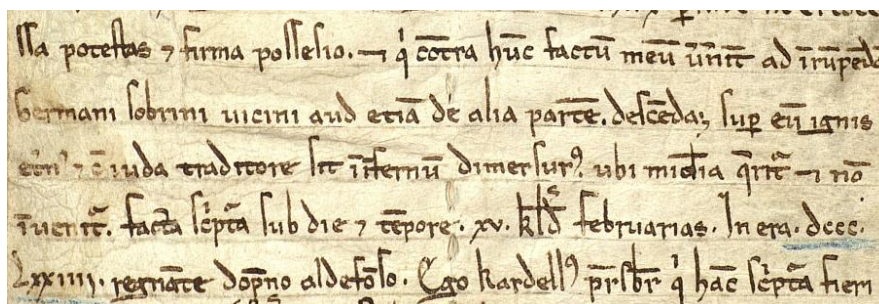 lla potestas ⁊ firma possesio. ⁊ q̇ cōtra hūc factū meū uēnit ad īrūpēdū
Germani sobrini uicini aud etiā de alia parte. descēdaꝫ sup̄ eū ignis
⁊ c̄ iuda traditore sit īfernū dimersurꝰ. ubi q̄rit᷑ ⁊ nō
īuenit᷑. facta sc̄pta sub die ⁊ tēpore. xv. kld februarias. In era. dccc.
Lxxiiii. regnāte dop̄no aldefōso. Ego kardellꝰ pr̄sbr q̇ hāc sc̄pta fieri